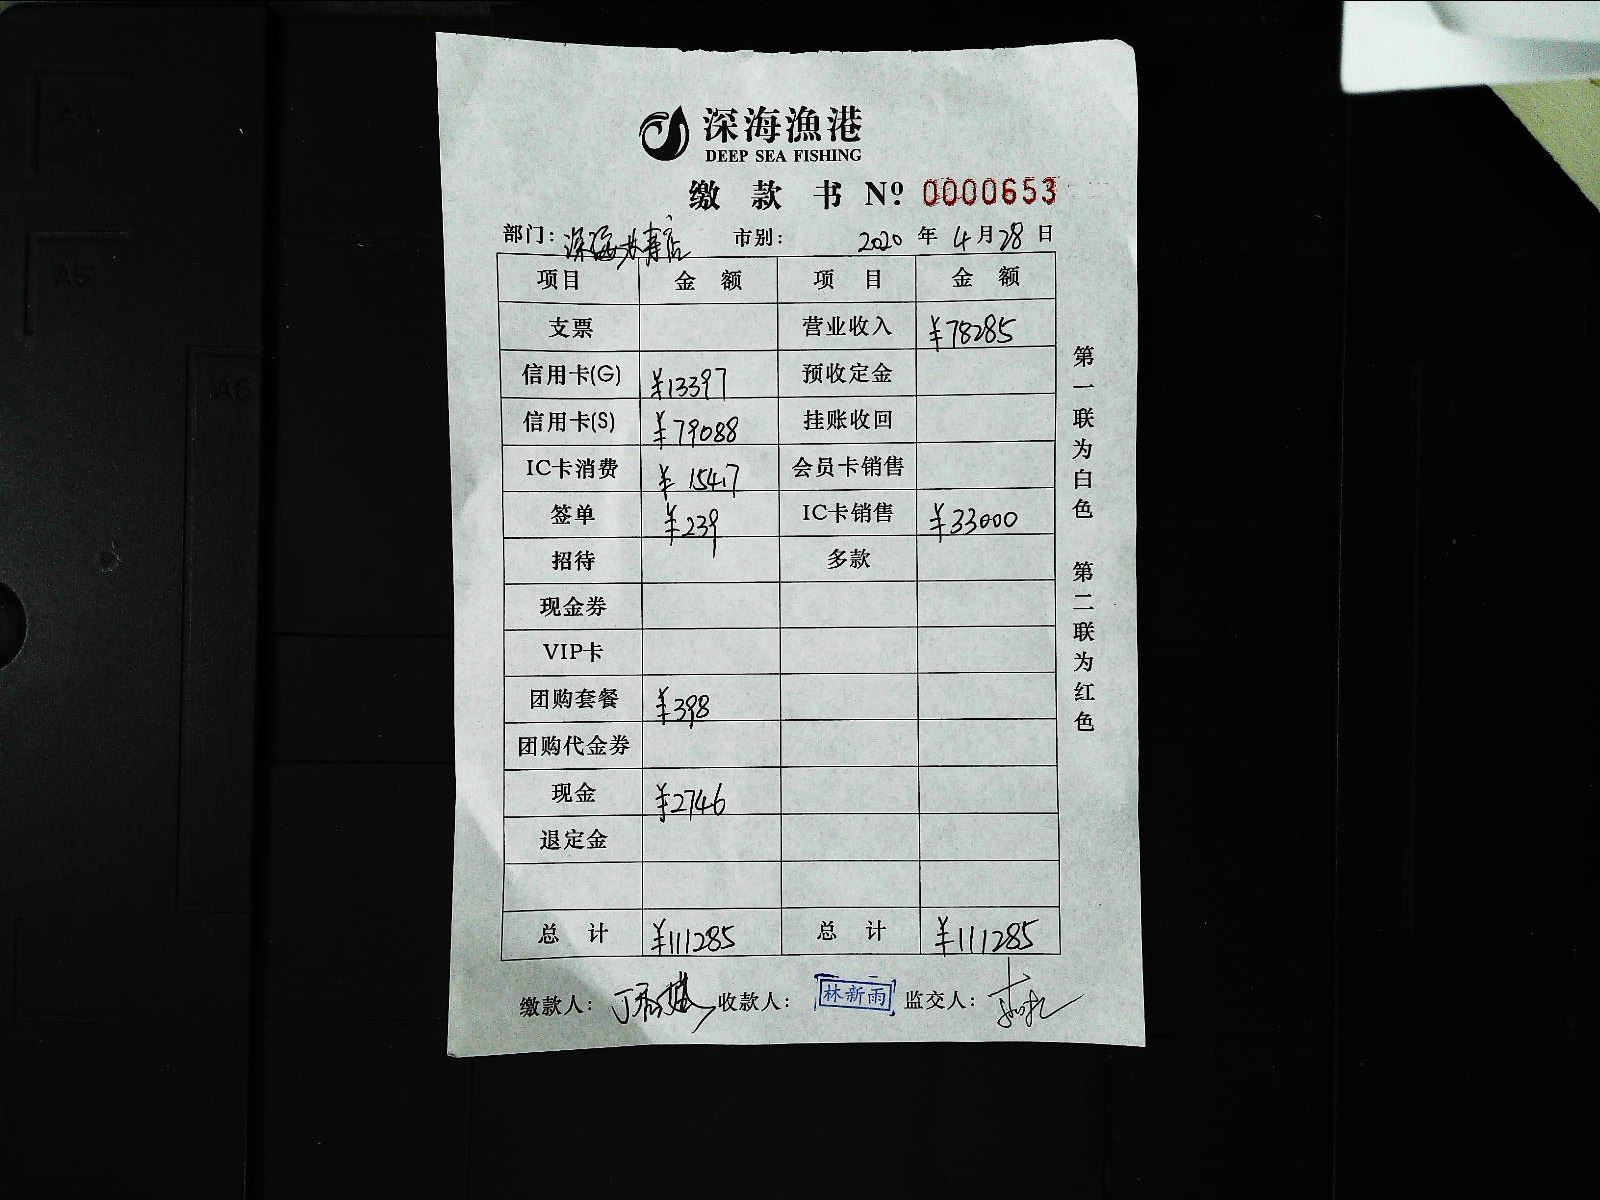 深海漁港
DEEP SEA FISHING
缴款书 Nº 0000653
部门: 深海 寿店 市别: 2020 年 4 月 28 日
项目 金额 项目 金额
支票 营业收入 ¥78285
信用卡(G) ¥13397 预收定金
信用卡(S) ¥79088 挂账收回
IC卡消费 ¥15417 会员卡销售
签单 ¥239 IC卡销售 ¥33000
招待 多款
现金券
VIP卡
团购套餐 ¥398
团购代金券
现金 ¥2746
退定金
总计 ¥111285 总计 ¥111285
缴款人: 收款人: 林新雨 监交人:
第一联为白色 第二联为红色
A4
A5
A6